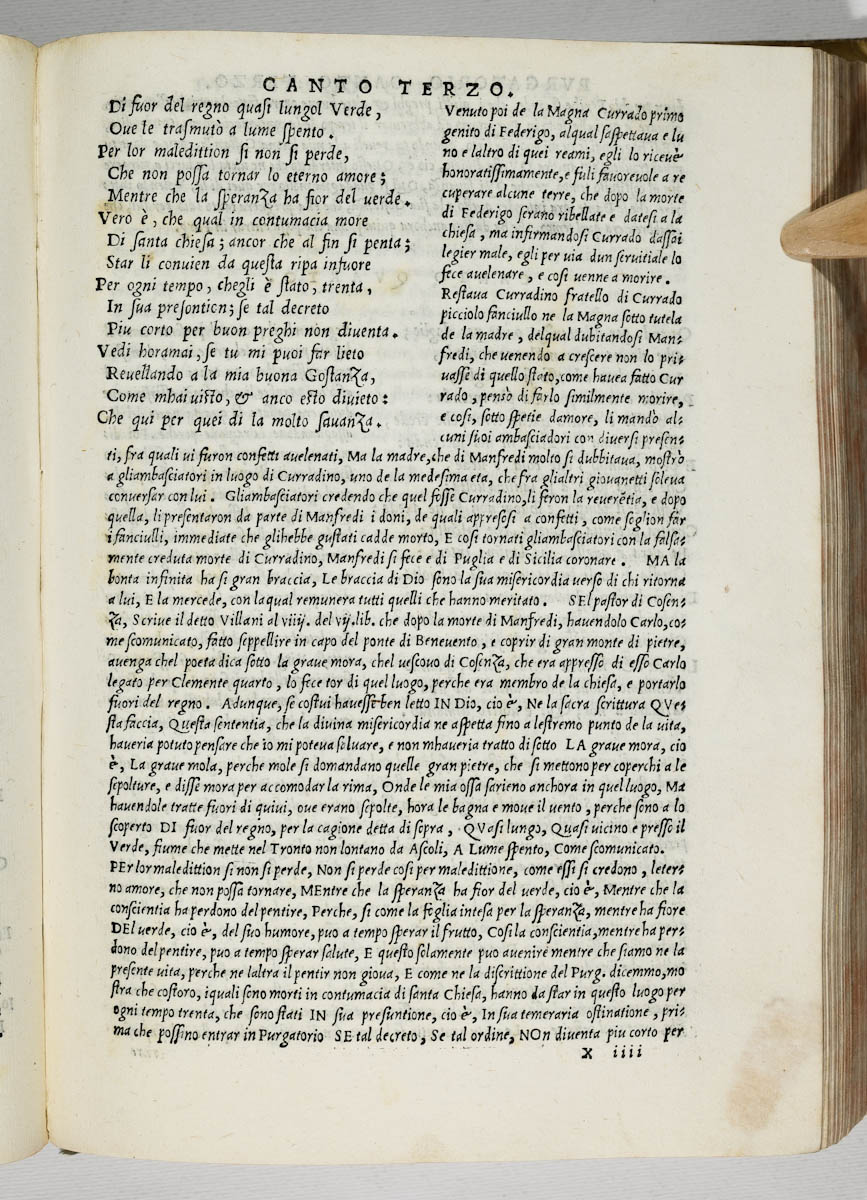 CANTO TERZO.
Di fuor del regno quasi lungol Verde,
Oue le trasmutò a lume spento.
Per lor maledittion si non si perde,
Che non possa tornar lo eterno amore;
Mentre che la speranza ha fior del verde.
Vero è, che qual in contumacia more
Di santa chiesa; ancor che al fin si penta;
Star li conuien da questa ripa infuore
Per ogni tempo, chegli è stato, trenta,
In sua presontion; se tal decreto
Piu corto per buon preghi non diuenta.
Vedi horamai, se tu mi puoi far lieto
Reuellando a la mia buona Gostanza,
Come mhai uisto, & anco esto diuieto:
Che qui per quei di la molto sauanza.
Venuto poi de la Magna Currado primo
genito di Federigo, alqual saspettaua e lu
no e laltro di quei reami, egli lo riceuè
honoratissimamente, e fuli fauoreuole a re
cuperare alcune terre, che dopo la morte
di Federigo serano ribellate e datesi a la
chiesa, ma infirmandosi Currado dassai
legier male, egli per uia dun seruitiale lo
fece auelenare, e cosi uenne a morire.
Restaua Curradino fratello di Currado
picciolo fanciullo ne la Magna sotto tutela
de la madre, delqual dubitandosi Man-
fredi, che uenendo a crescere non lo pri-
uasse di quello stato, come hauea fatto Cur
rado, pensò di farlo similmente morire,
e cosi, sotto spetie damore, li mandò al-
cuni suoi ambasciadori con diuersi presen-
ti, fra quali ui furon confetti auelenati, Ma la madre, che di Manfredi molto si dubbitaua, mostrò
a gliambasciatori in luogo di Curradino, uno de la medesima eta, che fra glialtri giouanetti soleua
conuersar con lui. Gliambasciatori credendo che quel fosse Curradino, li feron la reuerẽtia, e dopo
quella, li presentaron da parte di Manfredi i doni, de quali appresosi a confetti, come soglion far
i fanciulli, immediate che glihebbe gustati cadde morto, E cosi tornati gliambasciatori con la falsa-
mente creduta morte di Curradino, Manfredi si fece e di Puglia e di Sicilia coronare. MA la
bonta infinita ha si gran braccia, Le braccia di Dio sono la sua misericordia uerso di chi ritorna
a lui, E la mercede, con laqual remunera tutti quelli che hanno meritato. SEl pastor di Cosen-
za, Scriue il detto Villani al viiij. del vij. lib. che dopo la morte di Manfredi, hauendolo Carlo, co-
me scomunicato, fatto seppellire in capo del ponte di Beneuento, e coprir di gran monte di pietre,
auenga chel poeta dica sotto la graue mora, chel uescouo di Cosenza, che era appresso di esso Carlo
legato per Clemente quarto, lo fece tor di quel luogo, perche era membro de la chiesa, e portarlo
fuori del regno. Adunque, se costui hauesse ben letto IN Dio, cio è, Ne la sacra scrittura QVe-
sta faccia, Questa sententia, che la diuina misericordia ne aspetta fino a lestremo punto de la uita,
haueria potuto pensare che io mi poteua saluare, e non mhaueria tratto di sotto LA graue mora, cio
è, La graue mola, perche mole si domandano quelle gran pietre, che si mettono per coperchi a le
sepolture, e disse mora per accomodar la rima, Onde le mia ossa sarieno anchora in quel luogo, Ma
hauendole tratte fuori di quiui, oue erano sepolte, hora le bagna e moue il uento, perche sono a lo
scoperto DI fuor del regno, per la cagione detta di sopra, QVasi lungo, Quasi uicino e presso il
Verde, fiume che mette nel Tronto non lontano da Ascoli, A Lume spento, Come scomunicato.
PEr lor maledittion si non si perde, Non si perde cosi per maledittione, come essi si credono, leter-
no amore, che non possa tornare, MEntre che la speranza ha fior del uerde, cio è, Mentre che la
conscientia ha perdono del pentire, Perche, si come la foglia intesa per la speranza, mentre ha fiore
DEl uerde, cio è, del suo humore, puo a tempo sperar il frutto, Cosi la conscientia, mentre ha per-
dono del pentire, puo a tempo sperar salute, E questo solamente puo auenire mentre che siamo ne la
presente uita, perche ne laltra il pentir non gioua, E come ne la discrittione del Purg. dicemmo, mo
stra che costoro, iquali sono morti in contumacia di santa Chiesa, hanno da star in questo luogo per
ogni tempo trenta, che sono stati IN sua presuntione, cio è, In sua temeraria ostinatione, pri-
ma che possino entrar in Purgatorio SE tal decreto, Se tal ordine, NOn diuenta piu corto per
X iiii